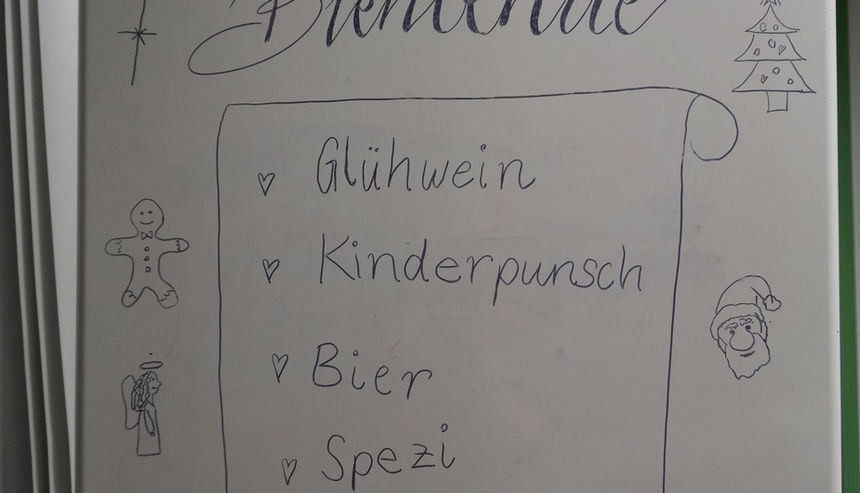 Glühwein
Kinderpunsch
Bier
Spezi